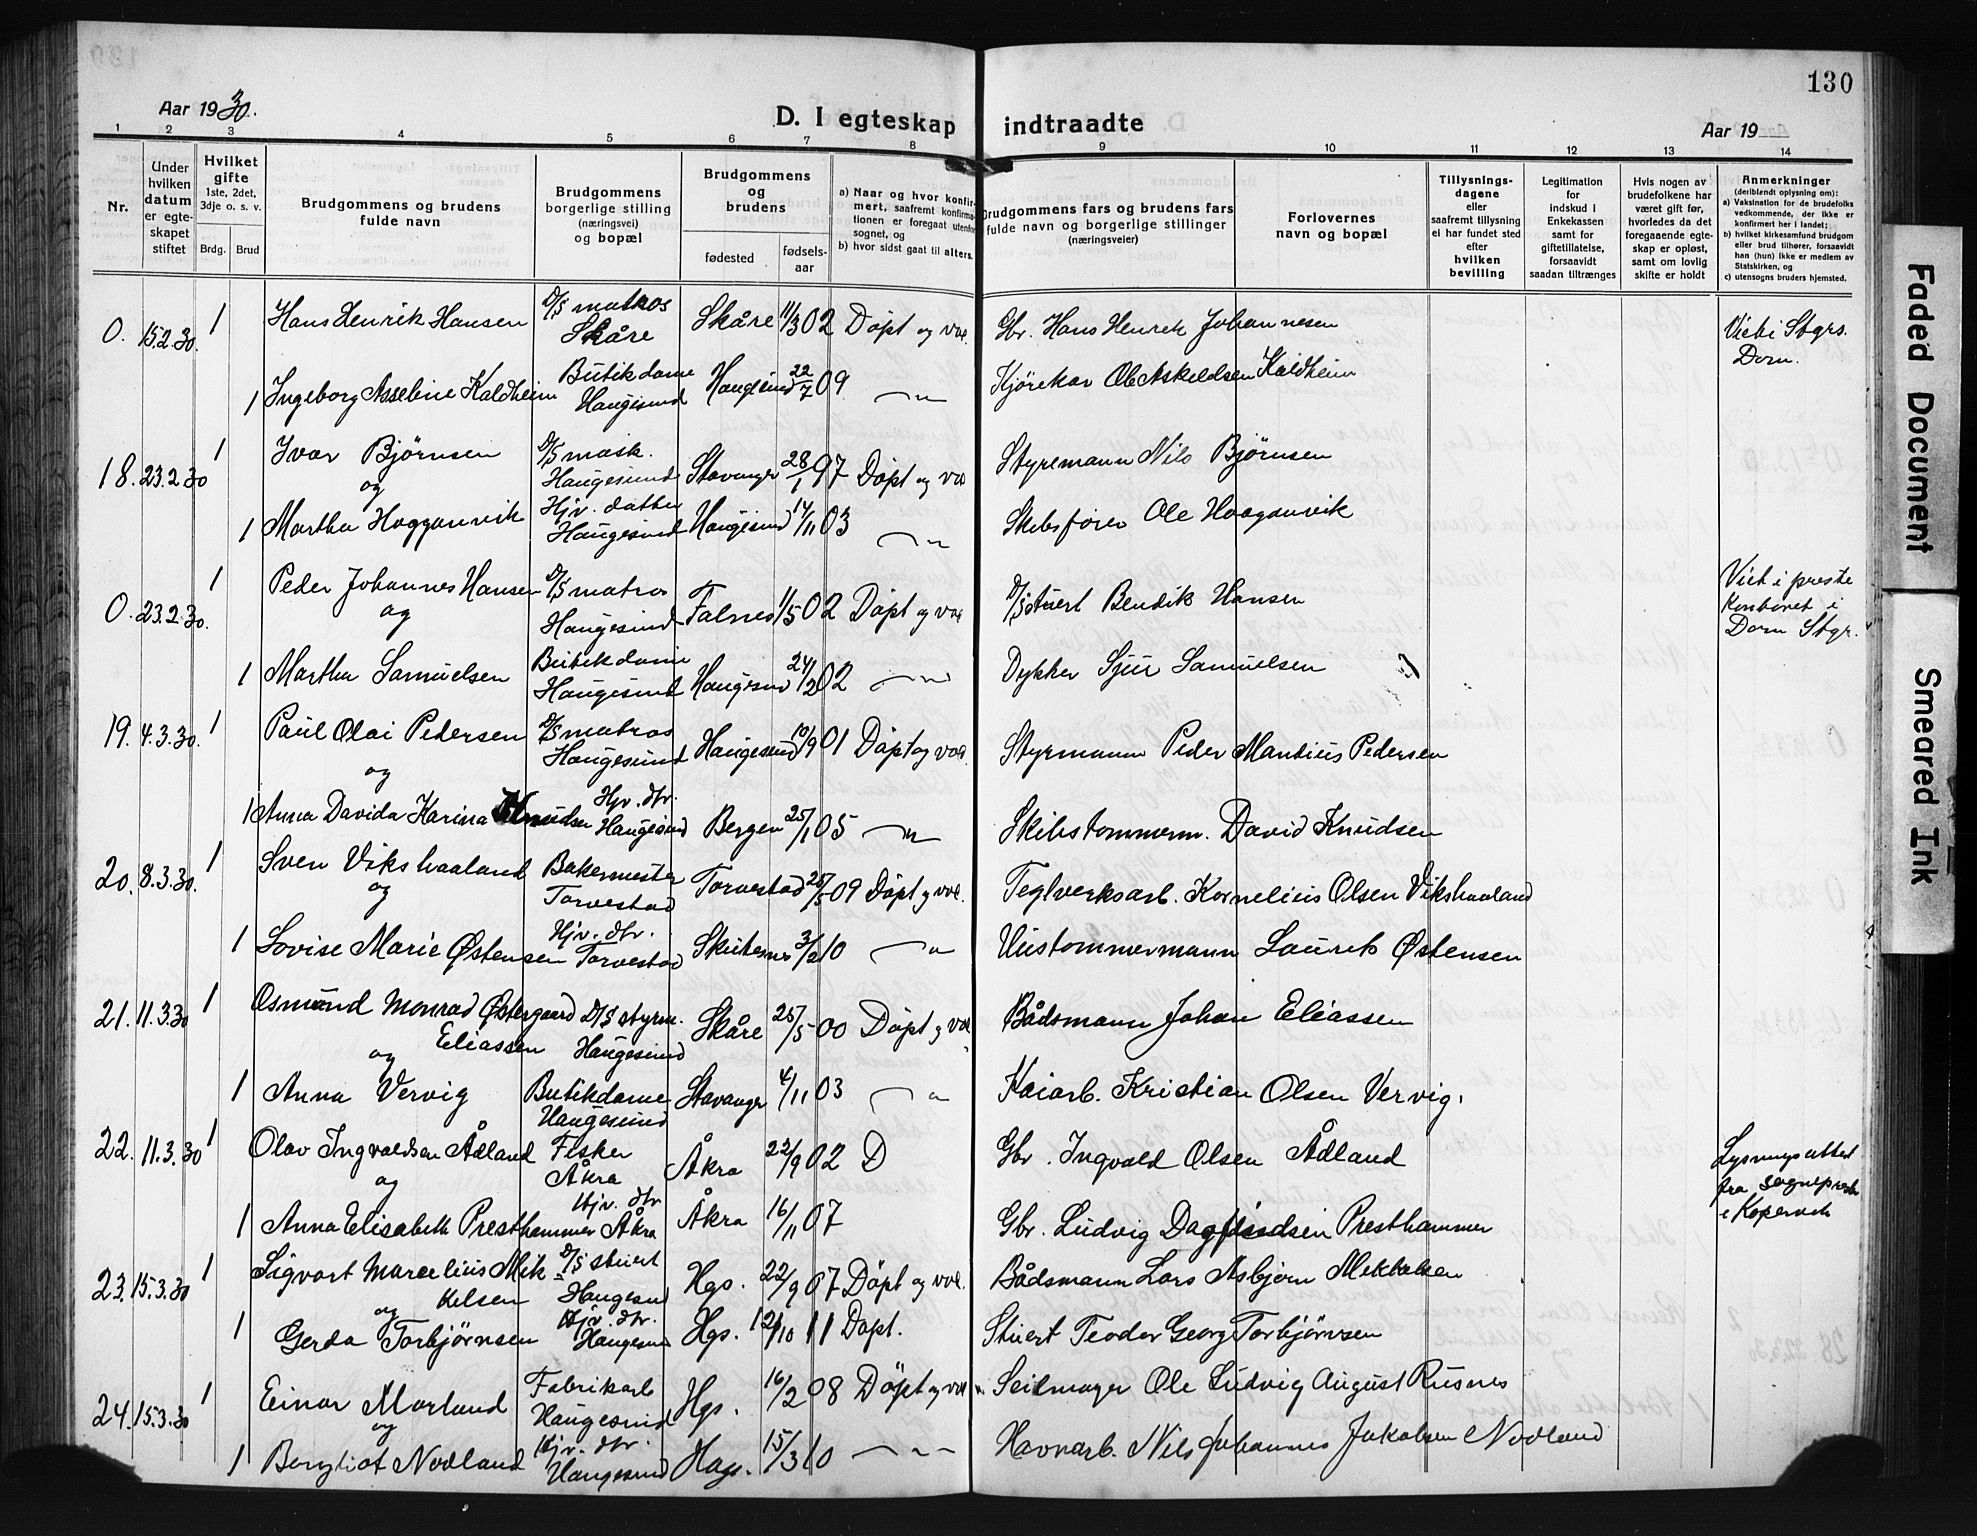 130
Aar 1930.
D. I egteskap indtraadte
Aar 19
1 2 3 4 5 6 7 8 9 10 11 12 13 14
Nr.
Under hvilken datum er egteskapet stiftet
Hvilket gifte 1ste, 2det, 3dje o. s. v.
Brdg. Brud
Brudgommens og brudens fulde navn
Brudgommens borgerlige stilling (næringsvei) og bopæl
Brudgommens og brudens
fødested fødsels-aar
a) Naar og hvor konfirmert, saafremt konfirmationen er foregaat utenfor sognet, og
b) hvor sidst gaat til alters.
Brudgommens fars og brudens fars fulde navn og borgerlige stillinger (næringsveier)
Forlovernes navn og bopæl
Tillysnings-dagene eller saafremt tillysning ei har fundet sted efter hvilken bevilling
Legitimation for indskud i Enkekassen samt for giftetillatelse, forsaavidt saadan tiltrænges
Hvis nogen av brudefolkene har været gift før, hvorledes da det foregaaende egteskap er opløst, samt om lovlig skifte er holdt
Anmerkninger (deriblendt oplysning om):
a) Vaksination for de brudefolks vedkommende, der ikke er konfirmert her i landet;
b) hvilket kirkesamfund brudgom eller brud tilhører, forsaavidt han (hun) ikke er medlem av Statskirken, og
c) utensogns bruders hjemsted.
0. 15.2.30. 1 Hans Henrik Hansen D/S matros Skåre Skåre 11/3 02 Döpt og vac. Gbr. Hans Henrik Johannesen Viet i Stgrs. Dom.
1 Ingeborg Asseline Kaldheim Butikdame Haugesund Haugesund 22/7 09 —"— Kjörekar Ole Askeldsen Kaldheim
18. 23.2.30 1 Ivar Bjørnsen og D/S mask. Haugesund Stavanger 28/1 97 Döpt og vac Styremann Nils Bjørnsen
1 Martha Hogganvik Hjv. datter Haugesund Haugesund 14/11 03 —"— Skibsfører Ole Haaganvik
0. 23.2.30. 1 Peder Johannes Hansen og D/S matros Haugesund Falnes 1/5 02 Döpt og vac D/S stuert Bendik Hansen Viet i preste kontoret i Dom Stgr.
1 Martha Samuelsen Butikdame Haugesund Haugesund 24/12 02 —"— Dykker Sjur Samuelsen
19. 4.3.30. 1 Paul Olai Pedersen og D/S matros Haugesund Haugesund 10/9 01 Döpt og vac. Styrmann Peder Mandius Pedersen
1 Anna Davida Karina Knudsen Hjv. dtr. Haugesund Bergen 25/1 05 —"— Skibstømmerm. David Knudsen
20. 8.3.30. 1 Sven Vikshaaland og Bakermester Torvestad Torvestad 25/5 09 Döpt og vac. Teglverksarb. Kornelius Olsen Vikshaaland
1 Lovise Marie Østensen Hjv. dtr. Torvestad Skudesnes 3/2 10 —"— Hustømmermann Laurits Østensen
21. 11.3.30 1 Osmund Monrad Østergaard Eliassen og D/S styrm. Haugesund Skåre 25/5 00 Döpt og vac Bådsmann Johan Eliassen
1 Anna Vervig Butikdame Haugesund Stavanger 4/11 03 —"— Kaiarb. Kristian Olsen Vervig.
22. 11.3.30 1 Olav Ingvaldsen Ådland og Fisker Åkra Åkra 22/9 02 D Gbr. Ingvald Olsen Ådland Lysningsattest fra sogneprest i Kopervik
1 Anna Elisabeth Presthammer Hjv. dtr Åkra Åkra 16/11 07 Gbr. Ludvig Dagfindsen Presthammer
23. 15.3.30 1 Sigvart Marcelius Mikkelsen og D/S stuert Haugesund Hgs. 22/9 07 Döpt og vac. Bådsmann Lars Asbjørn Mikkelsen
1 Gerda Torbjørnsen Hjv. dtr. Haugesund Hgs. 12/10 11 Döpt. Stuert Teodor Georg Torbjørnsen
24. 15.3.30 1 Einar Morland og Fabrikarb Haugesund Hgs. 16/2 08 Döpt og vac Seilmager Ole Ludvig August Rusnes
1 Bergliot Nodland Hjv. dtr. Haugesund Hags. 15/3 10 —"— Havnarb. Nils Johannes Jakobsen Nodland
Faded Document
Smeared Ink